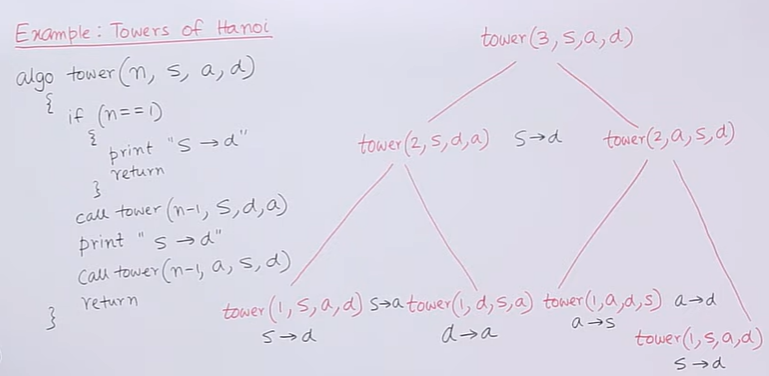 Example: Towers of Hanoi
algo tower(n, s, a, d)
{
if (n==1)
{
print "s→d"
return
}
call tower(n-1, s,d,a)
print "s→d"
call tower(n-1, a, s, d)
return
}
tower(3, s,a,d)
tower(2,s,d,a) s→d tower(2,a,s,d)
tower(1, s,a,d) s→a tower(1,d,s,a) tower(1,a,d,s) a→d
s→d d→a a→s
tower(1,s,a,d)
s→d